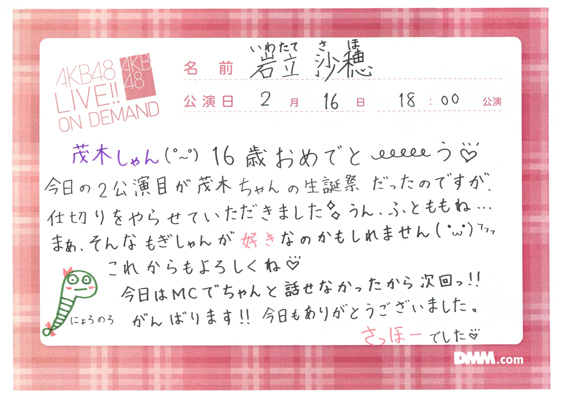 AKB48
LIVE!!
ON DEMAND
AKB
48
いわたて さほ
名前 岩立 沙穂
公演日 2月 16日 18:00 公演
茂木しゃん(°~°) 16歳おめでとーーーう♡
今日の2公演目が茂木ちゃんの生誕祭だったのですが、
仕切りをやらせていただきました うん、ふとももね…
まぁ、そんなもぎしゃんが好きなのかもしれません(･ω･)ﾌﾌｯ
これからもよろしくね♡
今日はMCでちゃんと話せなかったから次回っ!!
がんばります!! 今日もありがとうございました。
にょろのろ
さっほーでした♡
DMM.com